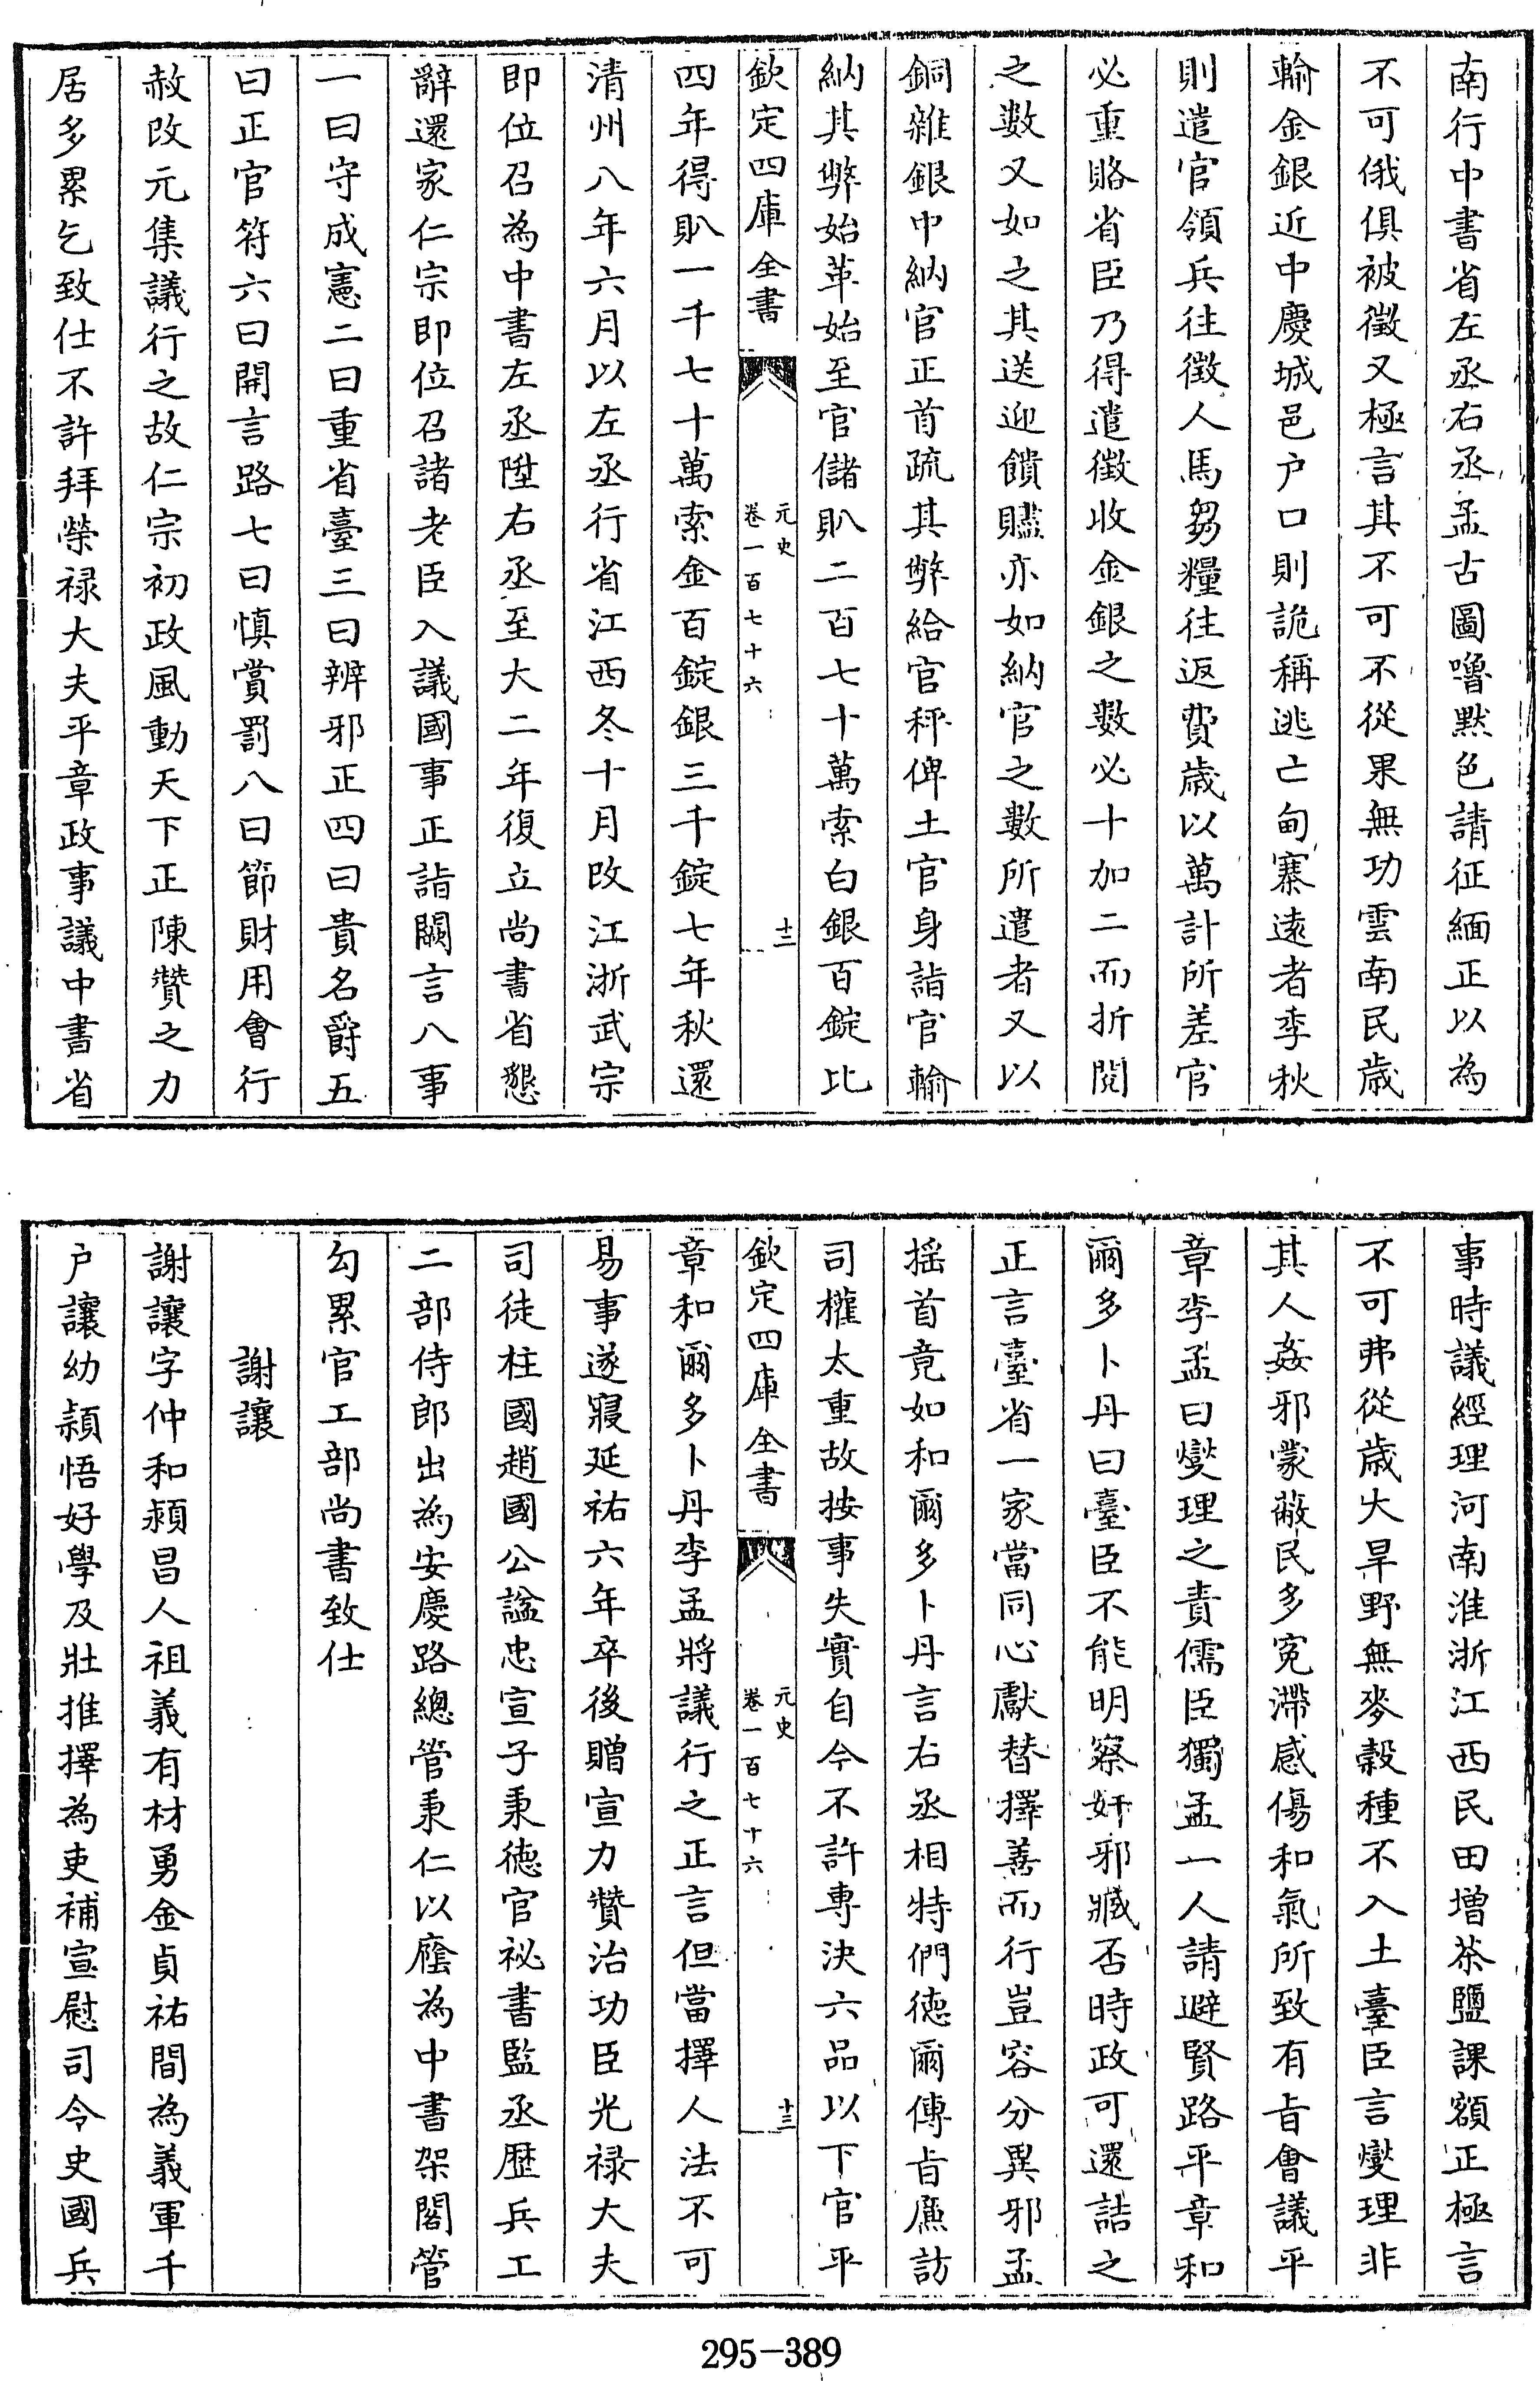 南行中書省左丞右丞孟古圖嚕黙色請征緬正以為
不可俄俱被徵又極言其不可不從果無功雲南民歳
輸金銀近中慶城邑户口則詭稱逃亡甸寨逺者李秋
則遣官領兵往徴人馬芻糧往返費歳以萬計所差官
必重賂省臣乃得遣徴收金銀之數必十加二而折閲
之數又如之其送迎饋贐亦如納官之數所遣者又以
銅雜銀中納官正首疏其弊給官秤俾土官身詣官輸
納其弊始革始至官儲𧴩二百七十萬索白銀百錠比
欽定四庫全書
元史
卷一百七十六
十二
四年得𧴩一千七十萬索金百錠銀三千錠七年秋還
清州八年六月以左丞行省江西冬十月改江浙武宗
即位召為中書左丞陞右丞至大二年復立尚書省懇
辭還家仁宗即位召諸老臣入議國事正詣闕言八事
一曰守成憲二曰重省臺三曰辨邪正四曰貴名爵五
曰正官符六曰開言路七曰慎賞罰八曰節財用㑹行
赦改元集議行之故仁宗初政風動天下正陳贊之力
居多累乞致仕不許拜榮禄大夫平章政事議中書省
事時議經理河南淮浙江西民田増茶鹽課額正極言
不可弗從歳大旱野無麥榖種不入土臺臣言燮理非
其人姦邪蒙蔽民多寃滯感傷和氣所致有㫖㑹議平
章李孟曰燮理之責儒臣獨孟一人請避賢路平章和
爾多卜丹曰臺臣不能明察奸邪臧否時政可還詰之
正言臺省一家當同心獻替擇善而行豈容分異邪孟
揺首竟如和爾多卜丹言右丞相特們徳爾傳㫖廉訪
司權太重故按事失實自今不許專決六品以下官平
欽定四庫全書
元史
卷一百七十六
十三
章和爾多卜丹李孟將議行之正言但當擇人法不可
易事遂寢延祐六年卒後贈宣力贊治功臣光禄大夫
司徒柱國趙國公諡忠宣子秉徳官祕書監丞歴兵工
二部侍郎出為安慶路總管秉仁以廕為中書架閣管
勾累官工部尚書致仕
謝讓
謝讓字仲和潁昌人祖義有材勇金貞祐間為義軍千
户讓幼穎悟好學及壯推擇為吏補宣慰司令史國兵
295-389